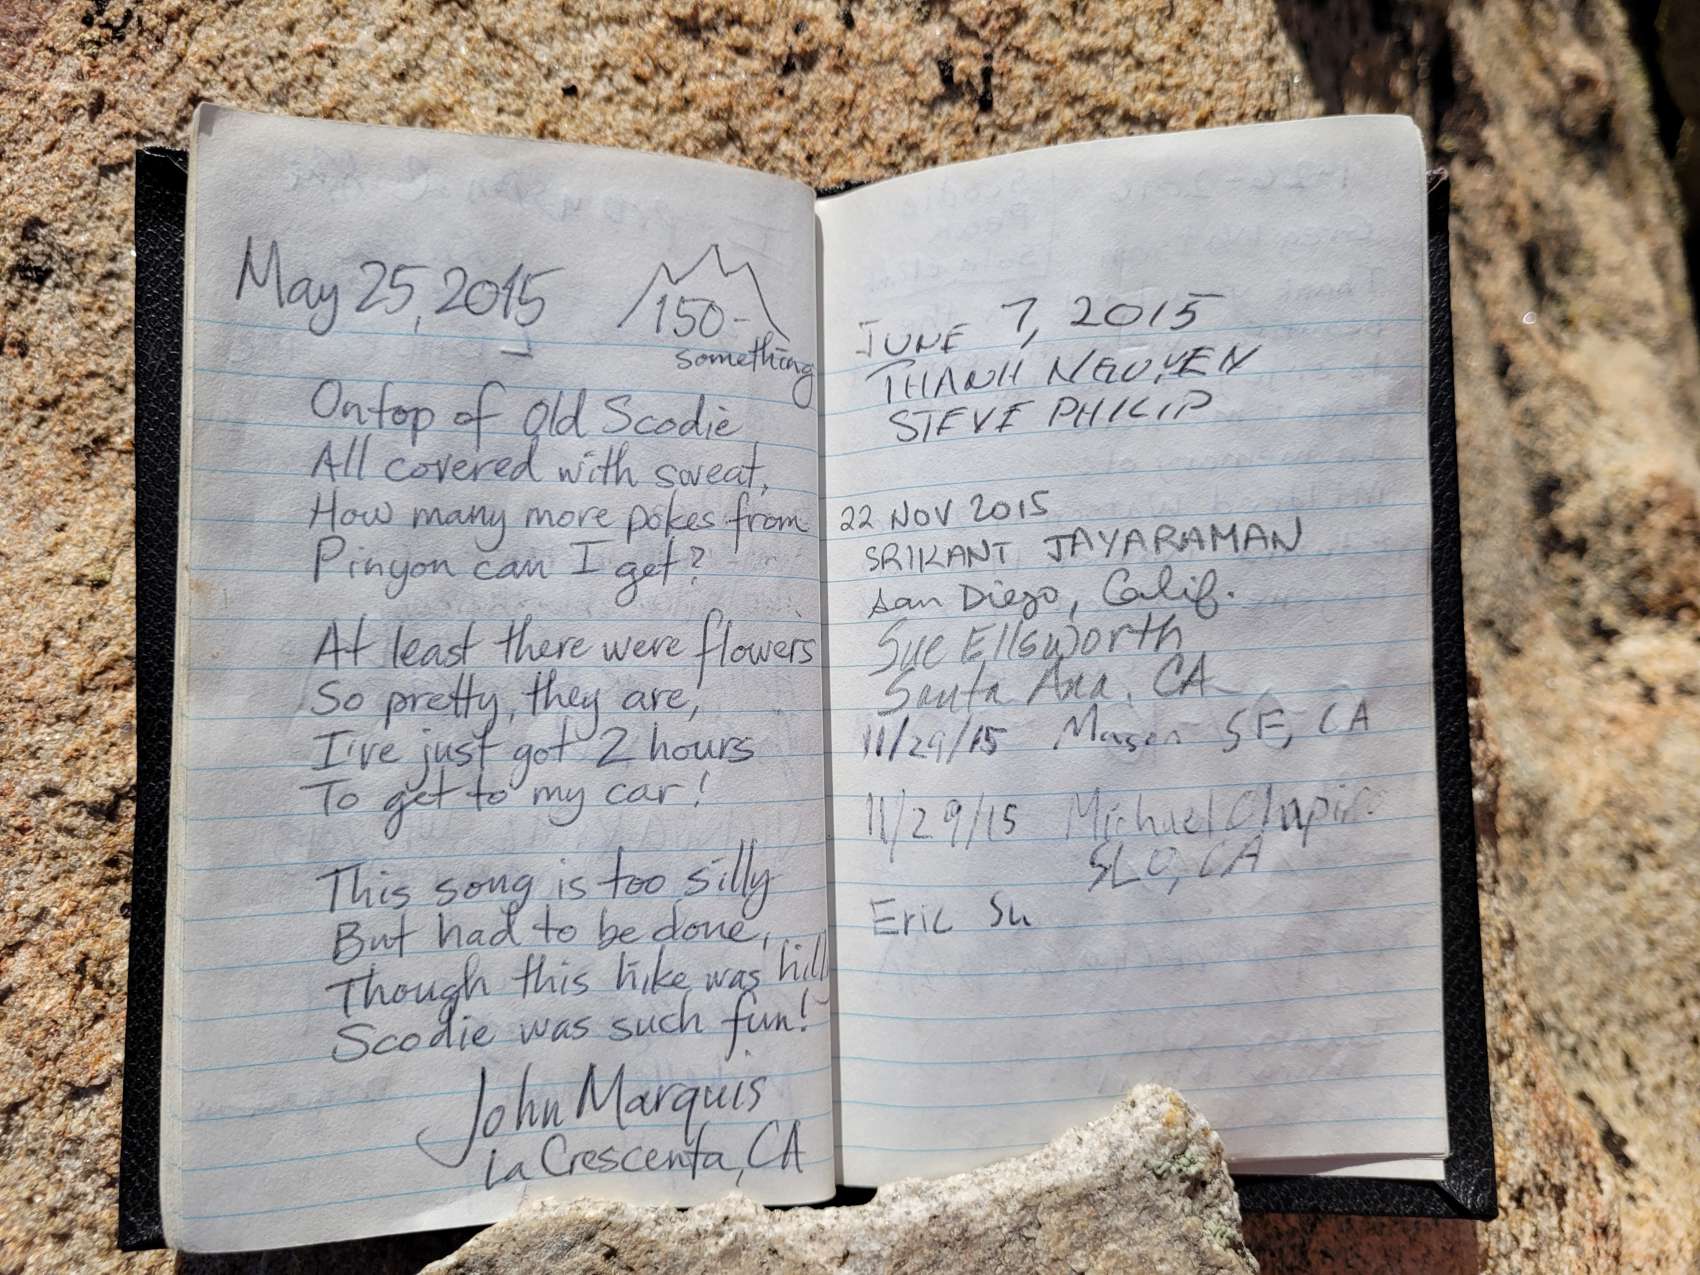 May 25, 2015
150-
something
On top of Old Scodie
All covered with sweat,
How many more pokes from
Pinyon can I get?
At least there were flowers
So pretty, they are,
I've just got 2 hours
To get to my car!
This song is too silly
But had to be done,
Though this hike was hilly
Scodie was such fun!
John Marquis
La Crescenta, CA
JUNE 7, 2015
THANH NGUYEN
STEVE PHILIP
22 NOV 2015
SRIKANT JAYARAMAN
San Diego, Calif.
Sue Ellsworth
Santa Ana, CA
11/29/15 Mason SF, CA
11/29/15 Michael
SLO, CA
Eric Su